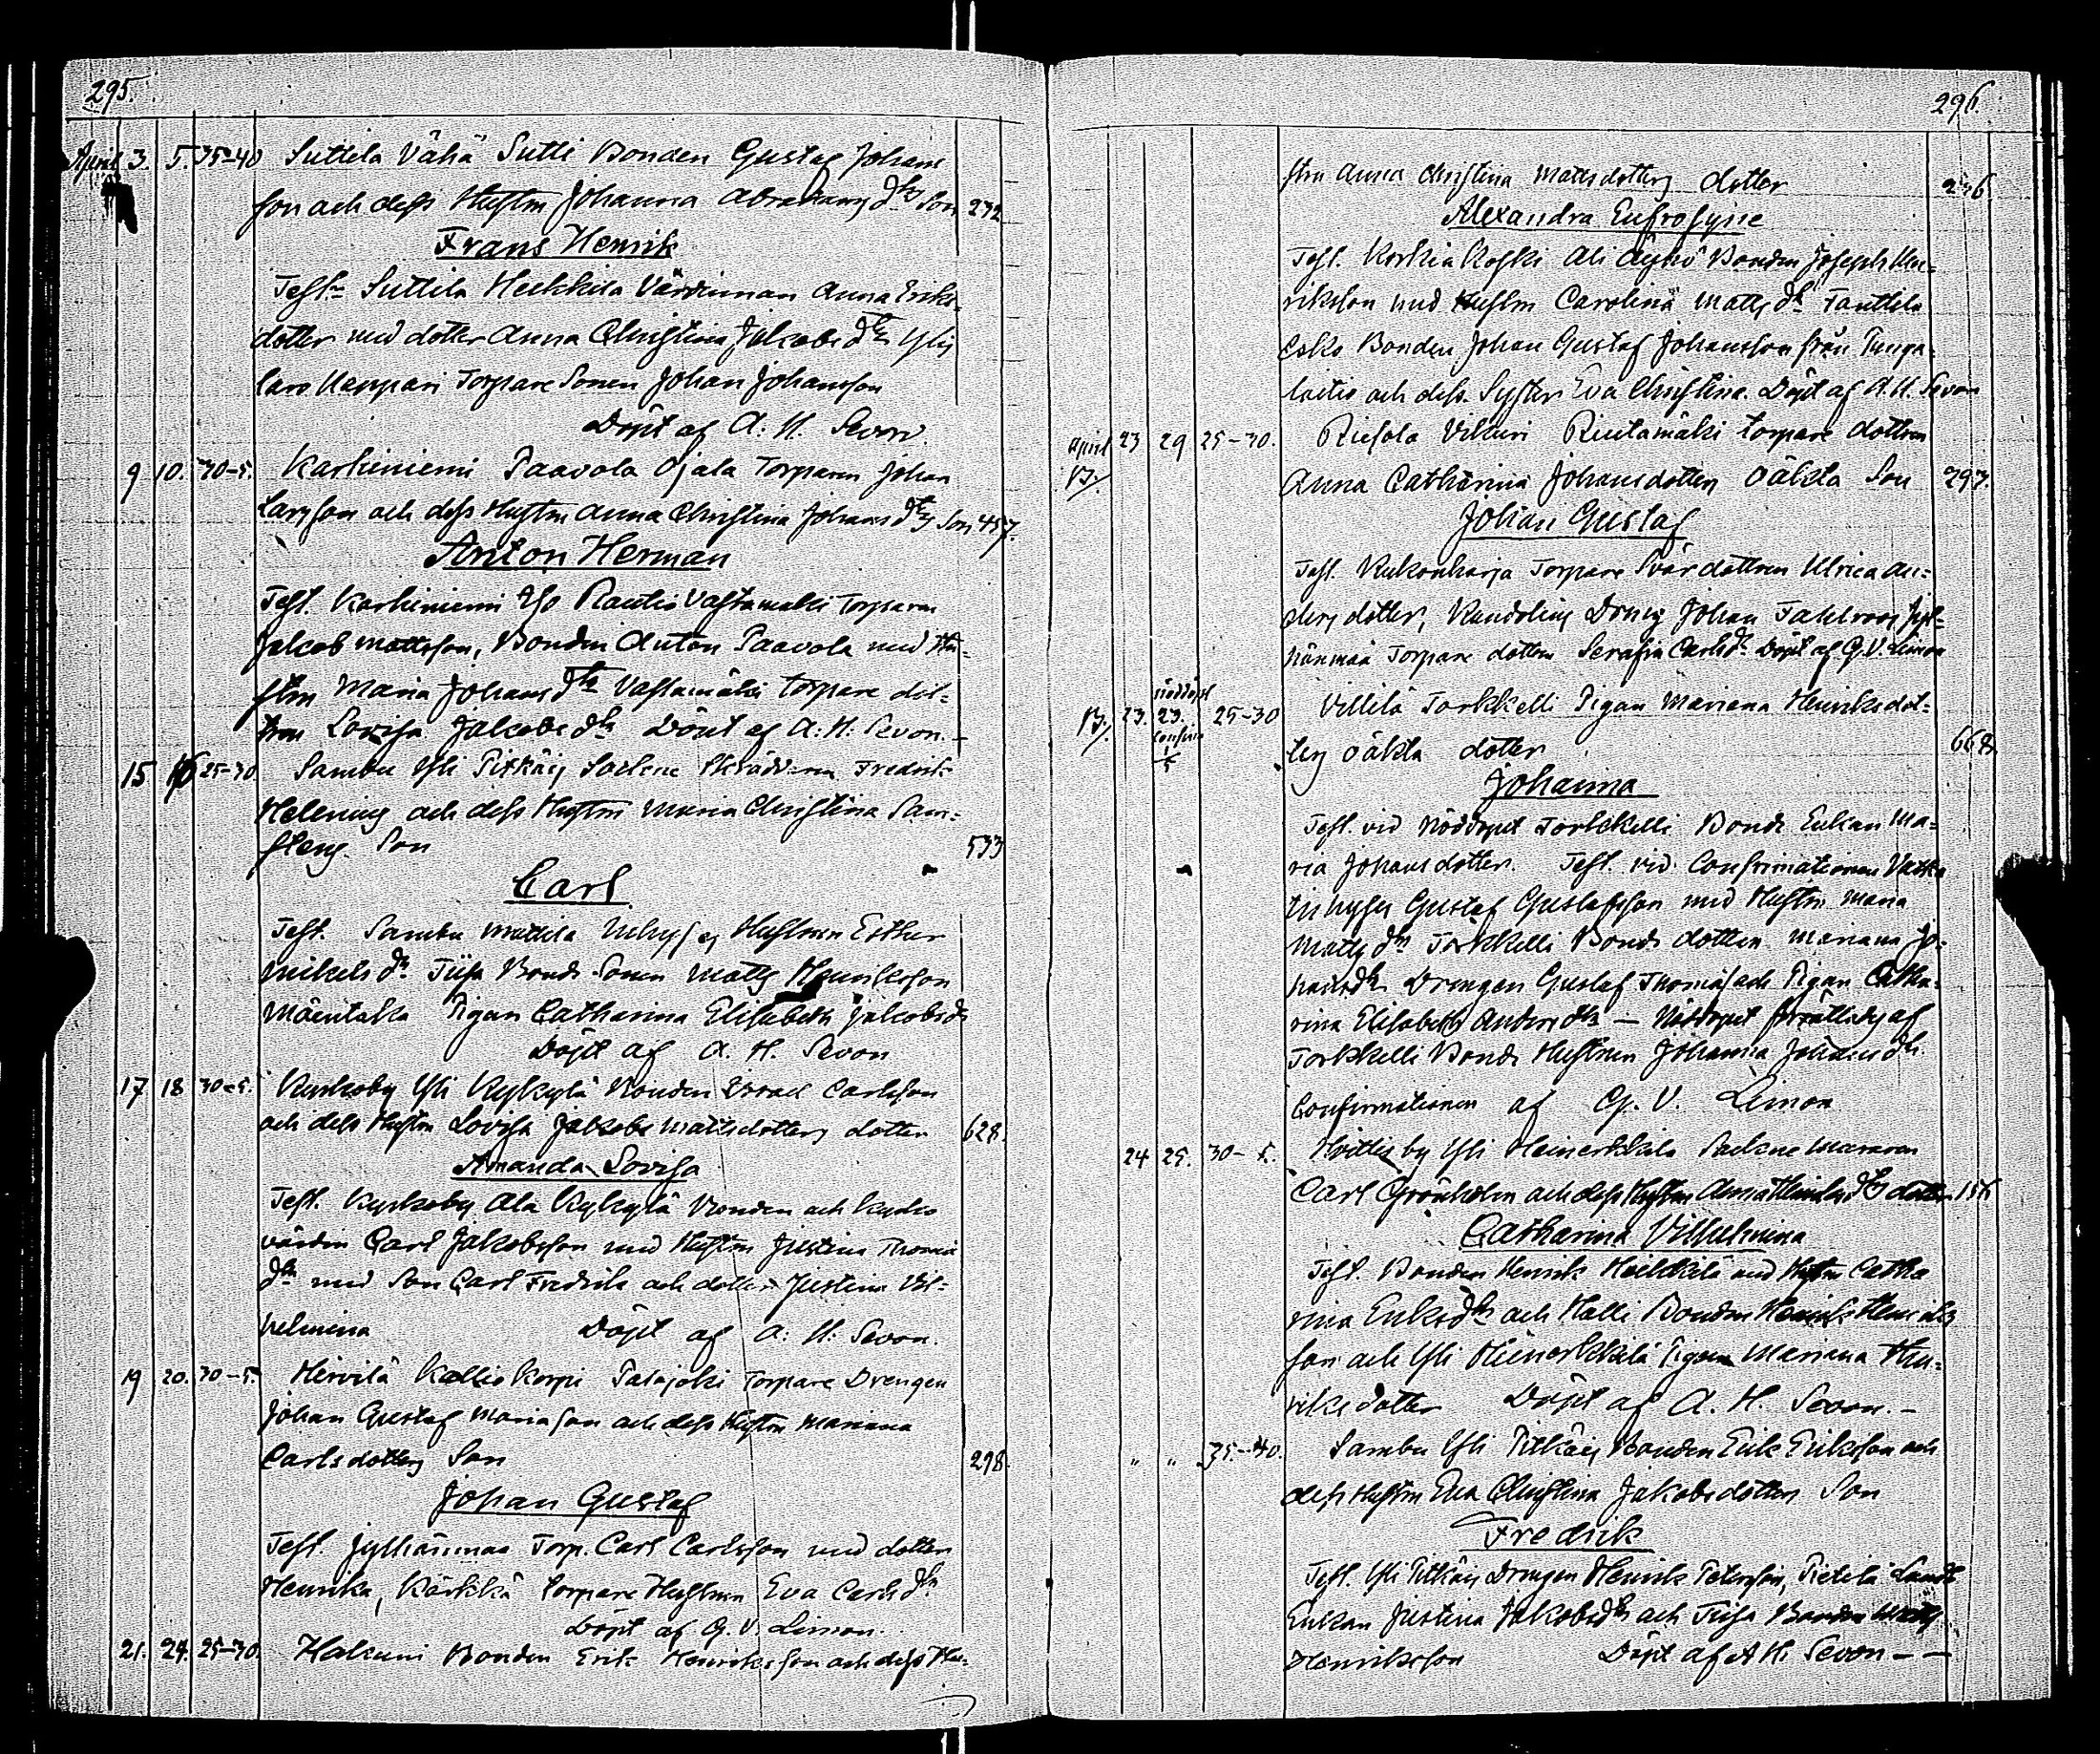 295.
April 3. 5. 35-40 Suttila Vähä Sutti Bonden Gustaf Johans
son och dess Hustru Johanna Abrahams dtr Son 232
Frans Henrik
Test. Suttila Heikkila Värdinnan Anna Eriks-
dotter med dotter Anna Christina Jakobs dtr
Torpare Sonen Johan Johansson
Döpt af A. H. Sevon.
9 10. 30-5. Karhiniemi Paavola Ojala Torparen Johan
Larsson och dess Hustru Anna Christina Johans dtrs Son 457.
Anton Herman
Test. Karhiniemi Iso Rautio Vastamäki Torparen
Jakob Mattsson, Bonden Anton Paavola med Hu-
stru Maria Johans dtr Vastamäki torpare dot-
tren Lovisa Jakobs dtr Döpt af A. H. Sevon.
15 16 25-30 Sambu Yli Pitkäis Fredrik
Helenius och dess Hustru Maria Christina Sam-
stens Son 533
Carl
Test. Sambu Mattila Hustrun Esther
Mikels dr Tiisa Bonde Sonen Matts Henriksson
Mäentaka Pigan Catharina Elisabeth Jakobs dr
Döpt af A. H. Sevon
17 18 30-5. Kyrkoby Yli Kylkylä Bonden Israel Carlsson
och dess Hustru Lovisa Jakobs Mattsdotters dotter 628.
Amanda Lovisa
Test. Kyrkoby Ala Kylkylä Bonden och Kyrko
värden Carl Jakobsson med Hustru Justina Thomas
dtr med Son Carl Fredrik och dotter Justina Vil-
helmina Döpt af A. H. Sevon.
19 20. 30-5. Hirvilä Kalliokorpi Palojoki Torpare Drengen
Johan Gustaf Mariason och dess Hustru Mariana
Carlsdotters Son 298.
Johan Gustaf
Test. Jylhänmaa Torp. Carl Carlsson med dotter
Henrika, Kärkkä torpare Hustrun Eva Carls dtr
Döpt af G. V. Limon.
21. 24. 25-30. Hakuni Bonden Erik Henriksson och dess Hu-
296.
stru Anna Christina Mattsdotters dotter 246
Alexandra Eufrosyne
Test. Korkiakoski Ali Äykö Bonden Joseph Hen-
riksson med Hustru Carolina Matts dtr Tanttila
Esko Bonden Johan Gustaf Johansson från Punga-
laitio och dess Syster Eva Christina. Döpt af A. H. Sevon
April 23 29 25-30. Riesola Vikuri Rintamäki torpare dottren
Anna Catharina Johansdotters oäkta Son 297.
Johan Gustaf
Test. Kukonharja Torpare Svärdottren Ulrica An-
ders dotter, Dreng Johan Jyl-
hänmaa Torpare dottren Serafia Carlsdr Döpt af G. V. Limon
nöddöpt
23. 23. 25-30 Villilä Torkkelli Pigan Mariana Henriksdot-
confirm
ters oäkta dotter 668.
Johanna
Test. vid Nöddopet Torkkelli Bonde Enkan Ma-
ria Johansdotter. Test. vid Confirmationen
Gustaf Gustafsson med Hustru Maria
Matts dtr Torkkelli Bonde dottren Mariana Jo-
hans dtr Drengen Gustaf Thomas och Pigan Catha-
rina Elisabeth Anders dtr — Nöddopet förrättades af
Torkkelli Bonde Hustrun Johanna Johans dtr.
Confirmationen af G. V. Limon
24 25. 30-5. Hvittis by Yli Heinerkkilä
Carl Grönholm och dess Hustru dtrs dotter
Catharina Vilhelmina
Test. Bonden Henrik Heikkilä med Hustru Catha
rina Eriks dtr och Halli Bonden Henrik Henriks
son och Yli Heinerkkilä Pigan Mariana Hen-
riks dotter Döpt af A. H. Sevon. —
„ „ 35-40. Sambu Yli Pitkäis Bonden Erik Eriksson och
dess Hustru Eva Christina Jakobsdotters Son
Fredrik
Test. Yli Pitkäis Drengen Henrik Petersson, Pietilä
Enkan Justina Jakobsdtr och Tiisa Bonden Matts
Henriksson Döpt af A H. Sevon — —